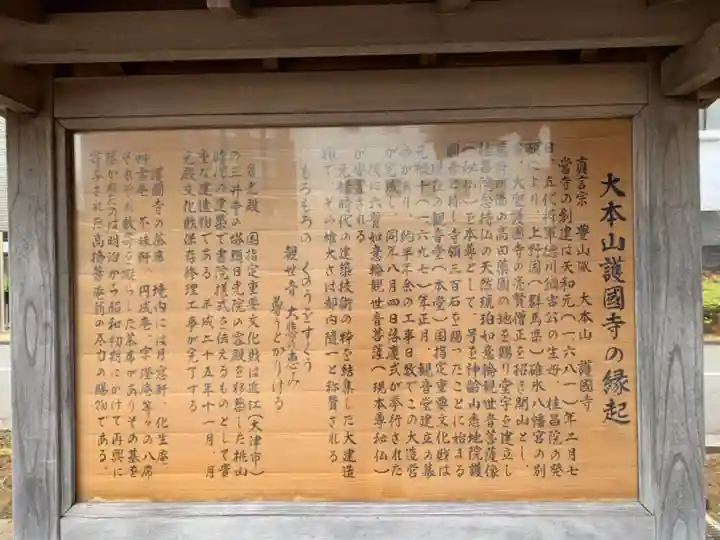 大本山護國寺の縁起
真言宗 豊山派 大本山 護國寺
当寺の創建は天和元(一六八一)年二月七
日、五代将軍徳川綱吉公の生母、桂昌院の発
願により、上野国(群馬県)碓氷八幡宮の別
当、大聖護国寺の亮賢僧正を招き開山とし、
幕府所属の高田薬園の地を賜り堂宇を建立し
桂昌院念持仏の天然琥珀如意輪観世音菩薩像
(秘仏)を本尊として、号を神齢山悉地院護
國寺と称し寺領三百石を賜ったことに始まる
現在の観音堂(本堂)国指定重要文化財は
元禄十(一六九七)年正月、観音堂建立の幕
命があり、約半年余の工事日数でこの大造営
が完成し、同年八月四日落慶式が挙行された
後に六臂如意輪観世音菩薩(現本尊秘仏)
が安置される
元禄時代の建築技術の粋を結集した大建造
物で、その雄大さは都内随一と称賛される
もろもろの くのうをすくう
観世音 大悲の恵み
尊うとかりける
月光殿 国指定重要文化財は近江(大津市)
の三井寺の塔頭日光院の客殿を移築した桃山
時代の建築で書院様式を伝えるものとして貴
重な建造物である。平成二十五年十一月、月
光殿文化財保存修理工事が完了する
護国寺の茶席 境内には月窓軒、化生庵
艸雷庵、不昧軒、円成庵、宗澄庵等々の八席
それぞれ数寄を凝らした茶席がありその基を
築かれたのは明治から昭和初期にかけて再興に
寄与された高橋箒庵翁の尽力の賜物である。